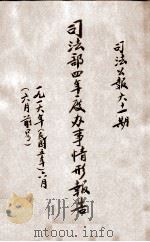 司法公报六十一期
司法部四年度办事情形报告
一九一六年(民国五年)六月
(六月前号)